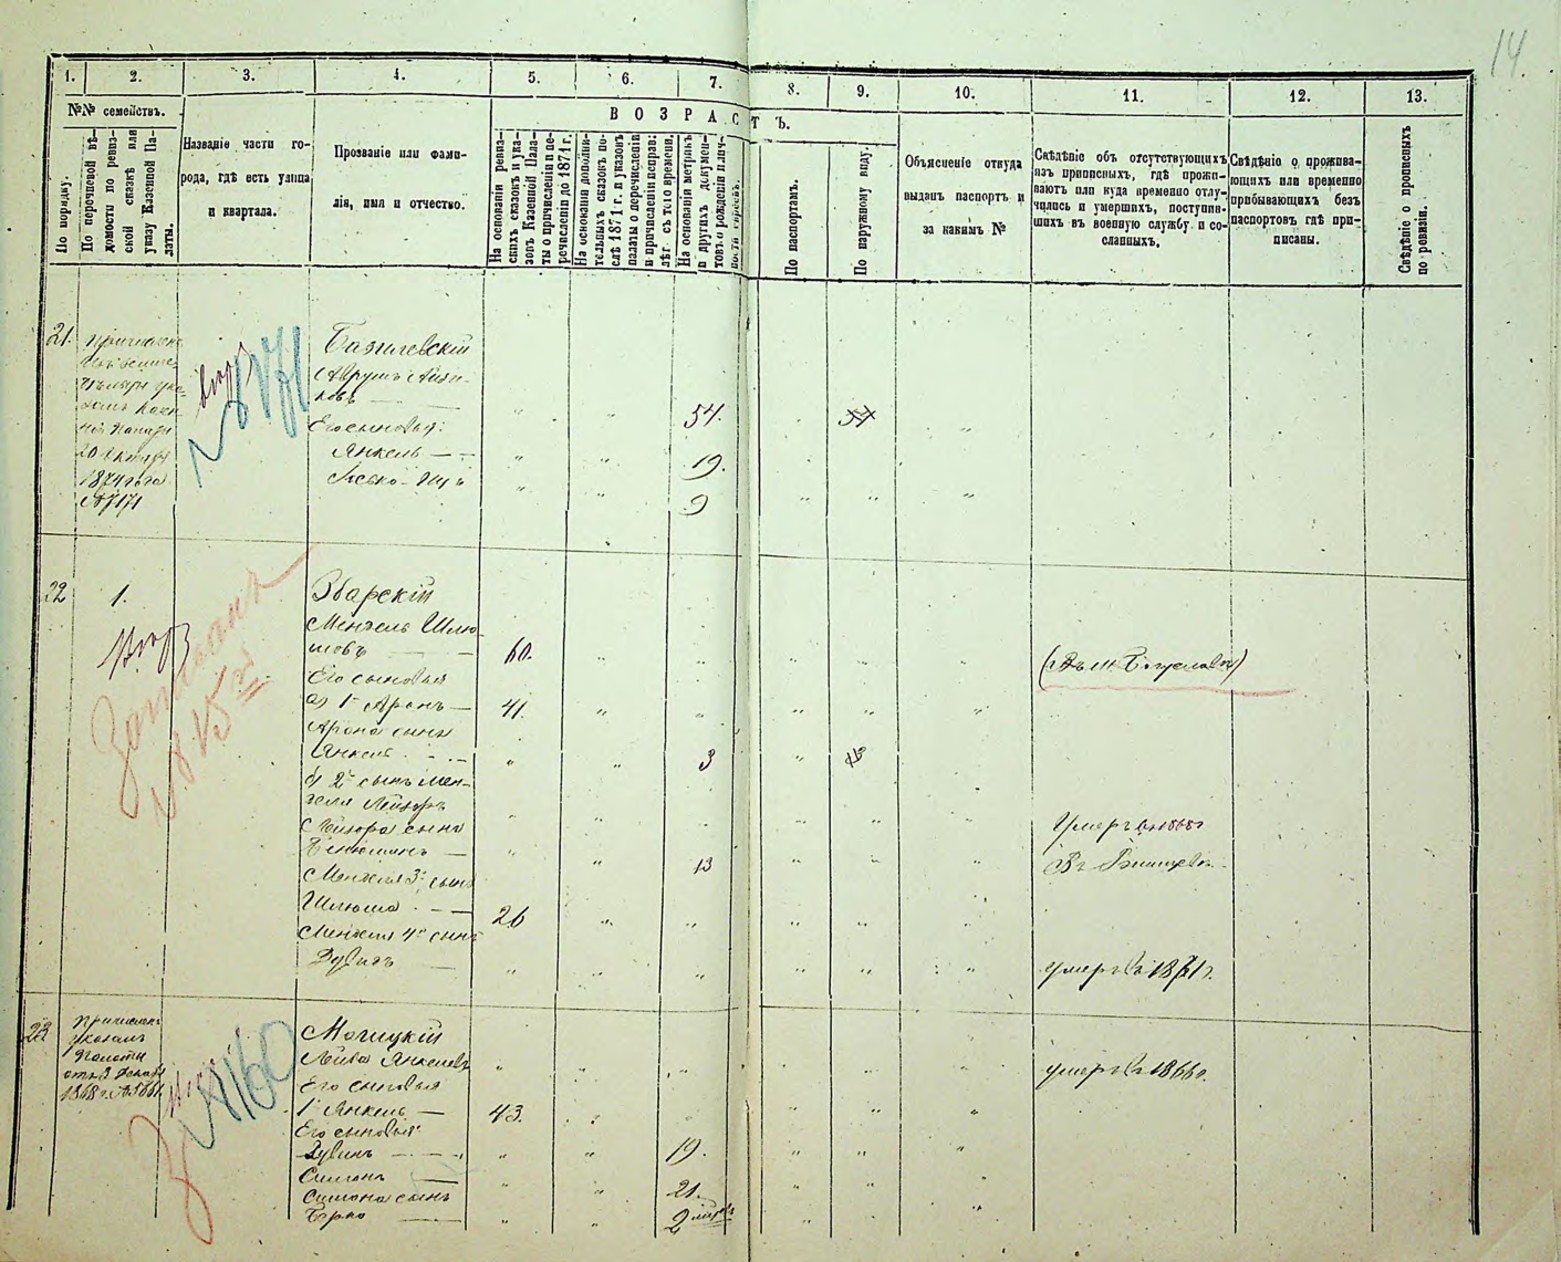 14
1. 2. 3. 4. 5. 6. 7. 8. 9. 10. 11. 12. 13.
№№ семействъ.
По порядку.
По перечневой вѣ-
домости по ревиз-
ской сказкѣ или
указу Казенной Па-
латы.
Названіе части го-
рода, гдѣ есть улица
и квартала.
Прозваніе или фами-
лія, имя и отчество.
ВОЗРАСТЪ.
На основаніи ревиз-
скихъ сказокъ и ука-
зовъ Казенной Пала-
ты о причисленіи и пе-
речисленіи до 1871 г.
На основаніи дополни-
тельныхъ сказокъ по-
слѣ 1871 г. и указовъ
палаты о перечисленіи
и причисленіи неправ:
лѣт съ того времени.
На основаніи метрикъ
и другихъ докумен-
товъ о рожденіи и лич-
По паспортамъ.
По наружному виду.
Объясненіе откуда
выданъ паспортъ и
за какимъ №
Свѣдѣніе объ отсутствующихъ
изъ приписныхъ, гдѣ прожи-
ваютъ или куда временно отлу-
чились и умершихъ, поступив-
шихъ въ военную службу и со-
сланныхъ.
Свѣдѣніе о прожива-
ющихъ или временно
прибывающихъ безъ
паспортовъ гдѣ при-
писаны.
Свѣдѣніе о прописныхъ
по ревизіи.
21.
20 Октября
1874 года
№ 7171
Аврумъ Айзи-
ковъ 54. 54
Его сыновья:
Янкель 19.
9
22 1.
Зварскій
Мендель Шлио-
мовъ 60.
Его сыновья
а) 1й Аронъ 41.
Арона сынъ
Янкель 3
б) 2й сынъ Мен-
деля Лейзоръ
умеръ в 1868 г
Лейзора сынъ
13
Менделя 3й сынъ
Шлиома 26
Менделя 4й сынъ
умеръ въ 1871 г.
23
Причисленъ
указомъ
Палаты
отъ 3 Декабр
1868 г. № 5661
№ 8160
Могицкій
Лейба Янкелевъ умеръ въ 1866 г.
Его сыновья
1й Янкель 43.
Его сыновья:
Дувинъ 19.
Симонъ 21.
Симона сынъ
Берко 2